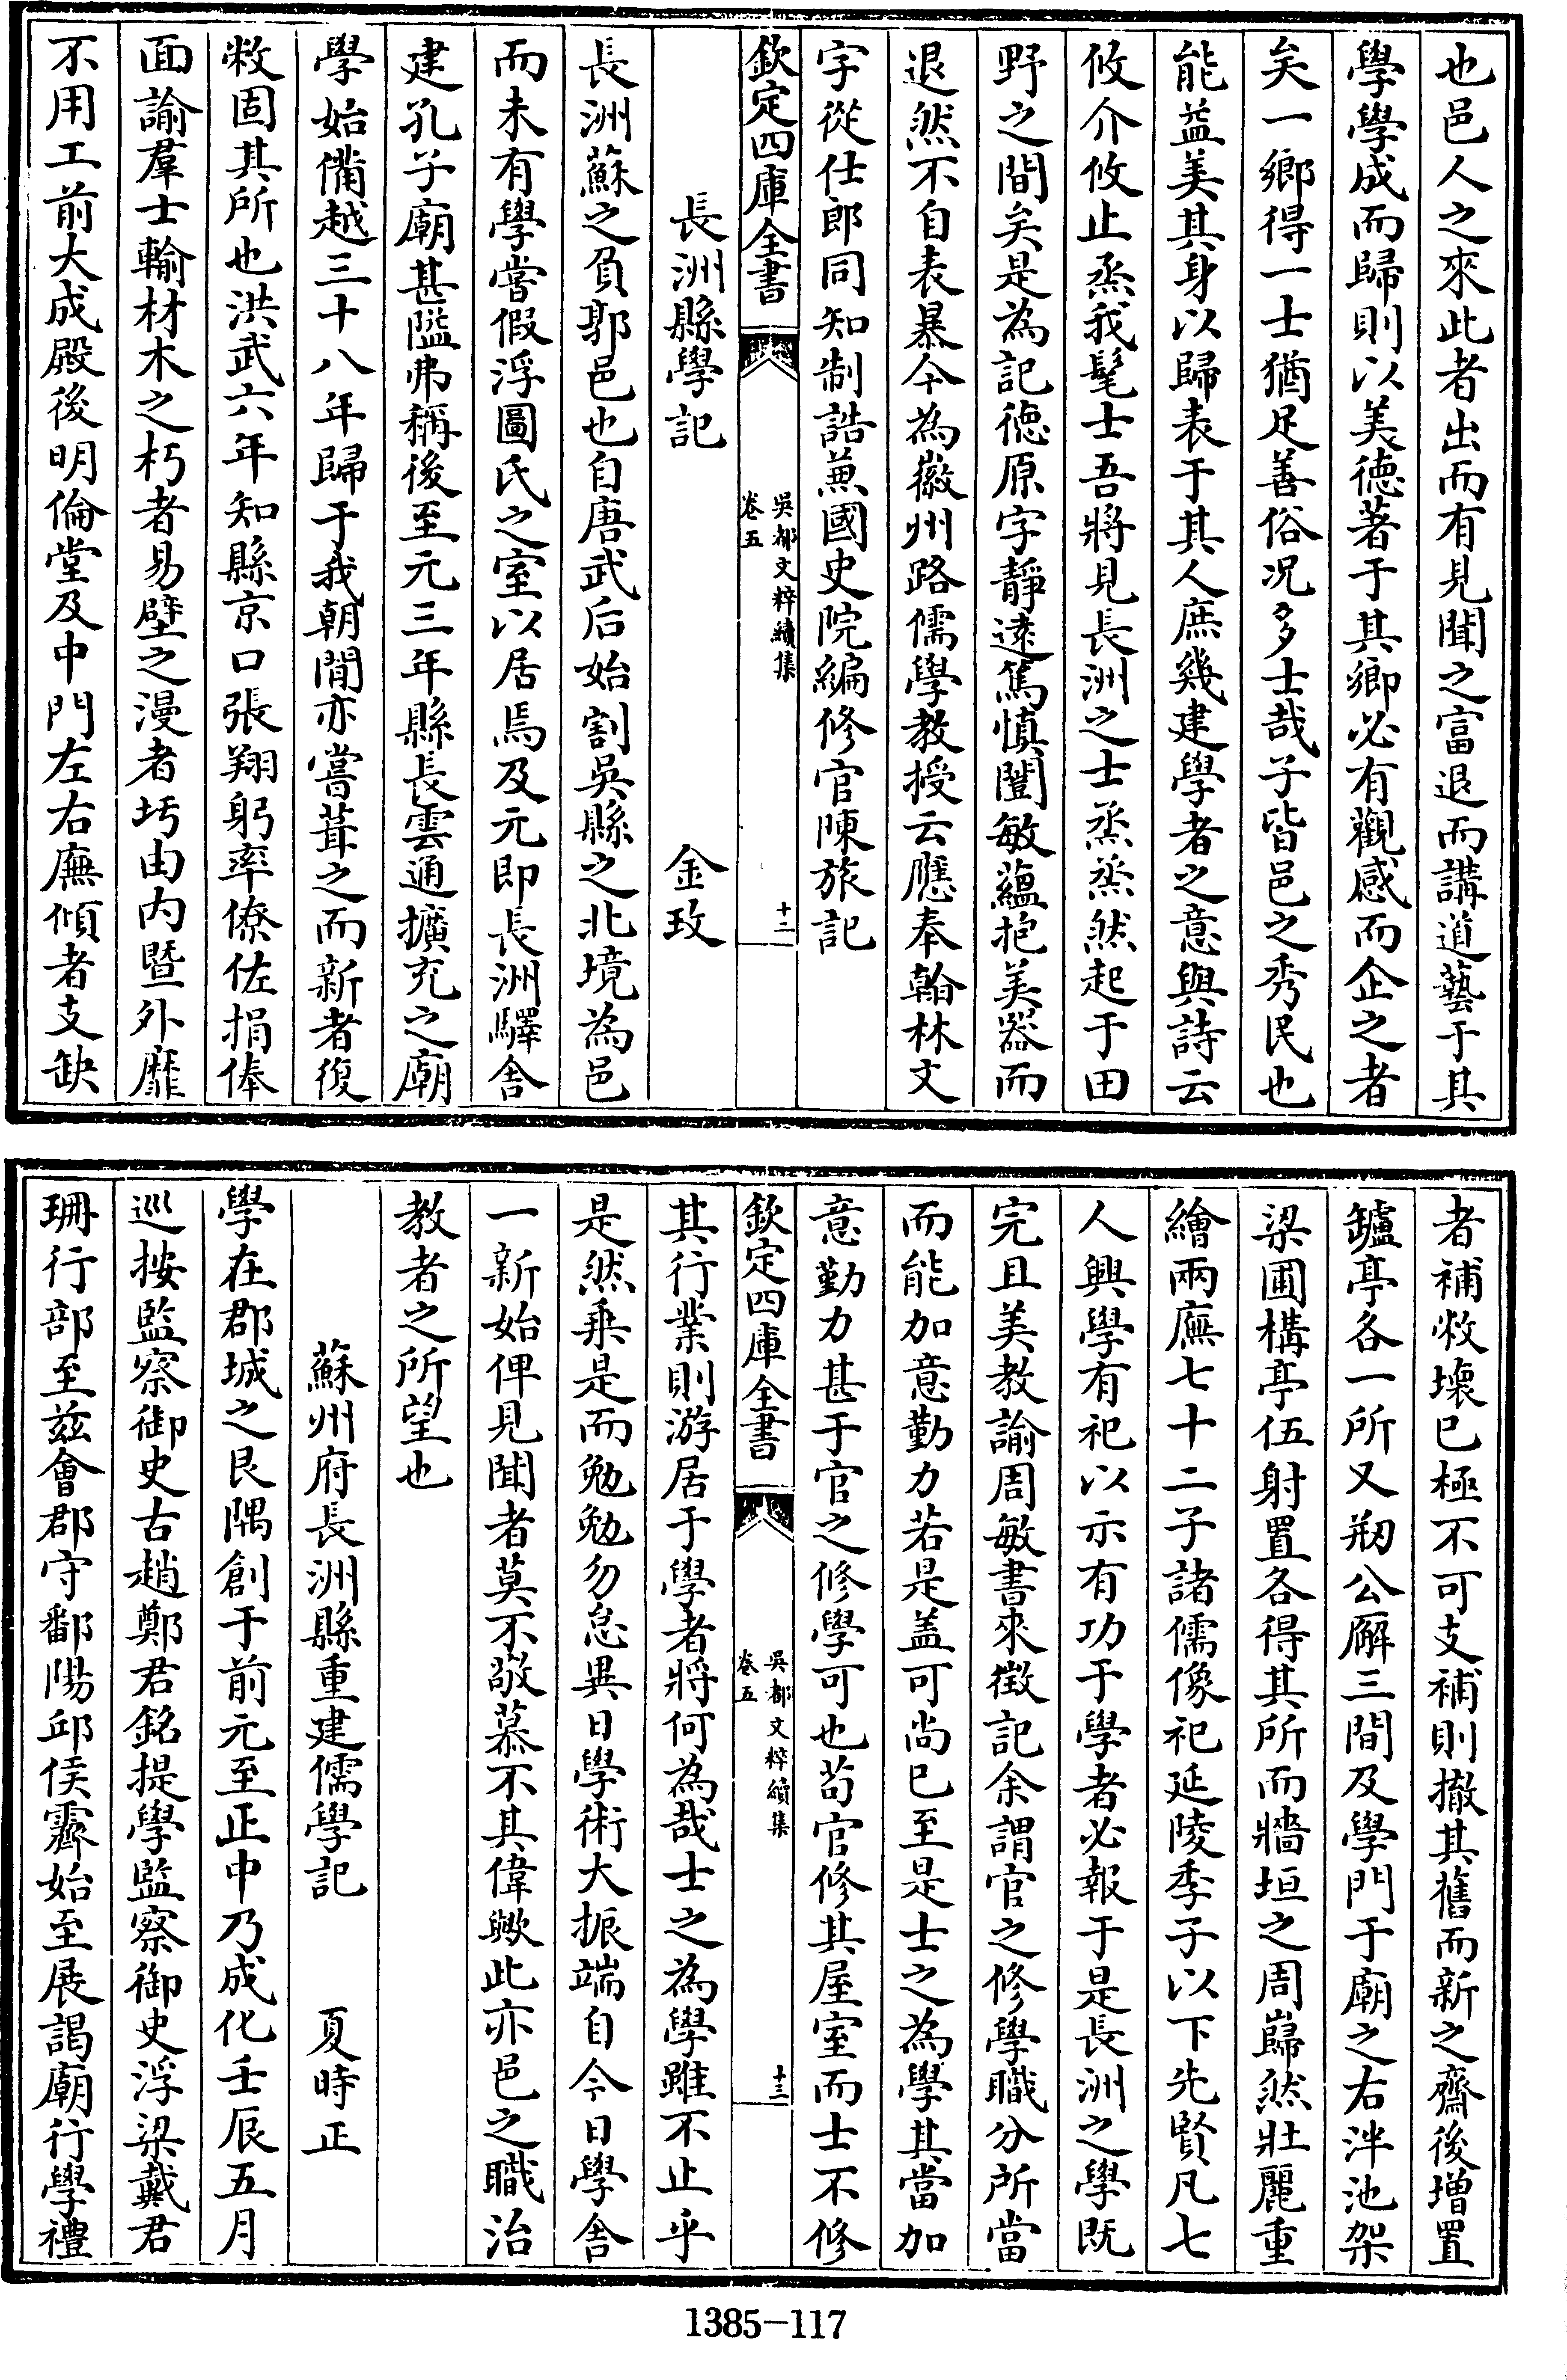 也邑人之來此者出而有見聞之富退而講道藝于其
學學成而歸則以美德著于其鄉必有觀感而企之者
矣一鄉得一士猶足善俗况多士哉子皆邑之秀民也
能益美其身以歸表于其人庶幾建學者之意與詩云
攸介攸止烝我髦士吾將見長洲之士烝烝然起于田
野之間矣是為記德原字靜遠篤慎闓敏蘊抱美器而
退然不自表暴今為徽州路儒學教授云應奉翰林文
字從仕郎同知制誥蒹國史院編修官陳旅記
欽定四庫全書
吳都文粹續集
卷五
十二
長洲縣學記 金玫
長洲蘇之負郭邑也自唐武后始割吳縣之北境為邑
而未有學嘗假浮圖氏之室以居焉及元即長洲驛舍
建孔子廟甚隘弗稱後至元三年縣長雲通擴充之廟
學始備越三十八年歸于我朝間亦嘗葺之而新者復
敉固其所也洪武六年知縣京口張翔躬率僚佐捐俸
面諭羣士輸材木之朽者易壁之漫者圬由內暨外靡
不用工前大成殿後明倫堂及中門左右廡傾者支缺
者補敉壞巳極不可支補則撤其舊而新之齋後增置
鑪亭各一所又剏公廨三間及學門于廟之右泮池架
梁圃構亭伍射置各得其所而牆垣之周巋然壯麗重
繪兩廡七十二子諸儒像祀延陵季子以下先賢凡七
人興學有祀以示有功于學者必報于是長洲之學既
完且美教諭周敏書來徵記余謂官之修學職分所當
而能加意勤力若是盖可尚巳至是士之為學其當加
意勤力甚于官之修學可也苟官修其屋室而士不修
欽定四庫全書
吳都文粹續集
卷五
十三
其行業則游居于學者將何為哉士之為學雖不止乎
是然乗是而勉勉勿怠異日學術大振端自今日學舍
一新始俾見聞者莫不敬慕不其偉歟此亦邑之職治
教者之所望也
蘇州府長洲縣重建儒學記 夏時正
學在郡城之艮隅創于前元至正中乃成化壬辰五月
巡按監察御史古趙鄭君銘提學監察御史浮梁戴君
珊行部至兹會郡守鄱陽邱侯霽始至展謁廟行學禮
1385-117